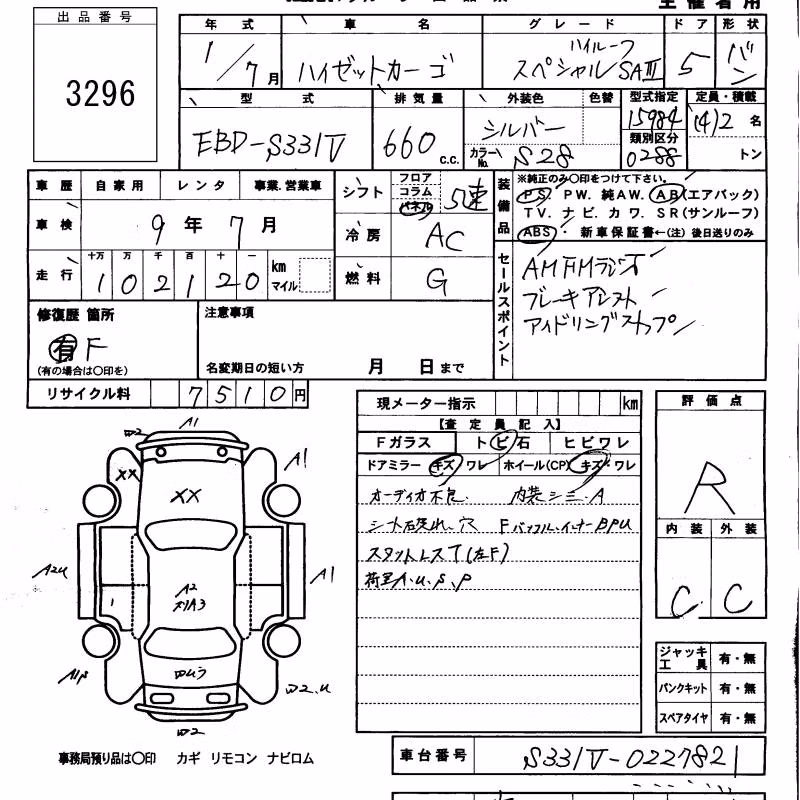 主催者用
出品番号
3296
年式 車名 グレード ドア 形状
1/7月 ハイゼットカーゴ ハイルーフ スペシャルSAⅢ 5 バン
型式 排気量 外装色 色替 型式指定 定員・積載
EBD-S331V 660c.c. シルバー 15984 (4)2名
カラーNo. S28 類別区分 0288 トン
車歴 自家用 レンタ 事業.営業車
シフト フロア コラム パネル 5速
装備品 ※純正のみ〇印をつけて下さい。
PS. PW. 純AW. AB(エアバック)
TV. ナビ. カワ. SR(サンルーフ)
ABS・ 新車保証書←(注) 後日送りのみ
車検 9年7月
冷房 AC
走行 十万 万 千 百 十 一
102120 km マイル
燃料 G
セールスポイント
AMFMラジオ
ブレーキアシスト
アイドリングストップ
修復歴 箇所
有 F
(有の場合は〇印を)
注意事項
名変期日の短い方 月 日まで
リサイクル料 7510円
現メーター指示 km
【査定員記入】
Fガラス トビ石 ヒビワレ
ドアミラー キズ・ワレ ホイール(CP) キズ・ワレ
オーディオ不良. 内装シミ.A
シート破れ、穴 Fバックル.インナーBPU
スタットレスT(左F)
荷室A.U.S.P
評価点
R
内装 外装
C C
A1
W2
XX
A1
XX
A2U
A1
A2
1
A1P
W2.U
W2
ジャッキ工具 有・無
パンクキット 有・無
スペアタイヤ 有・無
事務局預り品は〇印 カギ リモコン ナビロム
車台番号 S331V-0227821